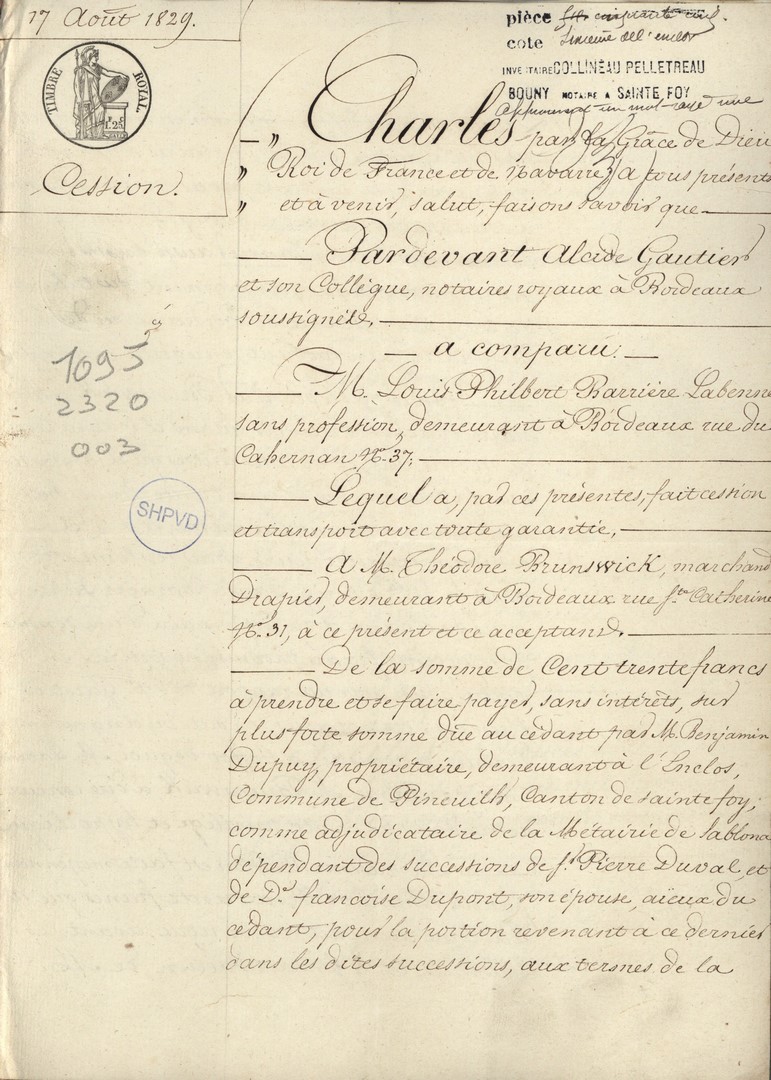 17 Août 1829.
pièce
cote
INVENTAIRE COLLINEAU PELLETREAU
BOUNY NOTAIRE A SAINTE FOY
TIMBRE ROYAL
1F.25C
Cession.
„ Charles par la Grâce de Dieu
„ Roi de France et de Navarre, à tous présents
„ et à venir, salut, faisons savoir que
Pardevant Alcide Gautier
et son Collègue, notaires royaux à Bordeaux
soussignés,
a comparu:
M. Louis Philbert Barrière Labenne
sans profession, demeurant à Bordeaux rue du
Cahernan No. 37;
Lequel a, par ces présentes, fait cession
et transport avec toute garantie,
A M. Théodore Brunswick, marchand
Drapier, demeurant à Bordeaux rue Ste Catherine
No. 31, à ce présent et ce acceptant,
De la somme de Cent trente francs
à prendre et se faire payer, sans intérêts, sur
plus forte somme düe au cédant par M. Benjamin
Dupuy, propriétaire, demeurant à l'Enclos,
Commune de Pineuilh, Canton de sainte foy,
comme adjudicataire de la Métairie de Sablona
dépendant des successions de Sr. Pierre Duval et
de De. françoise Dupont, son épouse, aïeux du
cédant, pour la portion revenant à ce dernier
dans les dites successions, aux termes de la
1095
2320
003
SHPVD